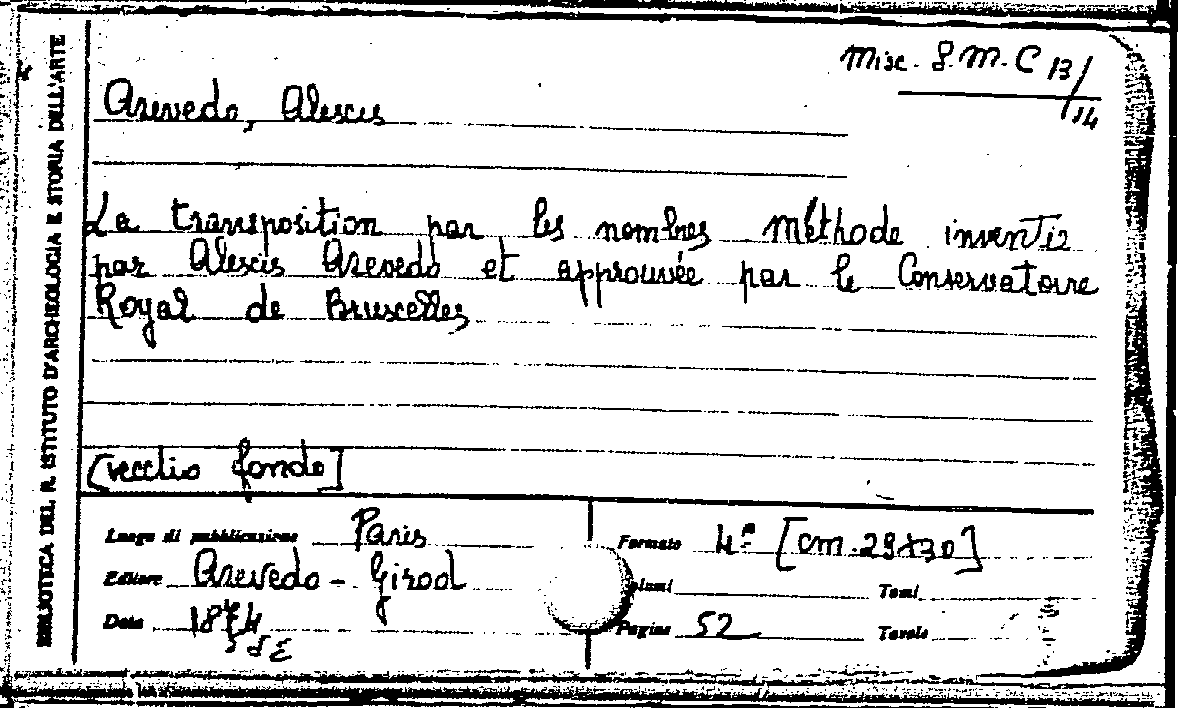 Misc. S.M.C 13/14
Azevedo, Alexis
La transposition par les nombres méthode inventée
par Alexis Azevedo et approuvée par le Conservatoire
Royal de Bruxelles
[vecchio fondo]
Luogo di pubblicazione Paris
Formato 4º [cm.29x30]
Editore Azevedo - Girod
Volumi
Tomi
Data 1874
Pagine 52
Tavole
BIBLIOTECA DEL R. ISTITUTO D'ARCHEOLOGIA E STORIA DELL'ARTE